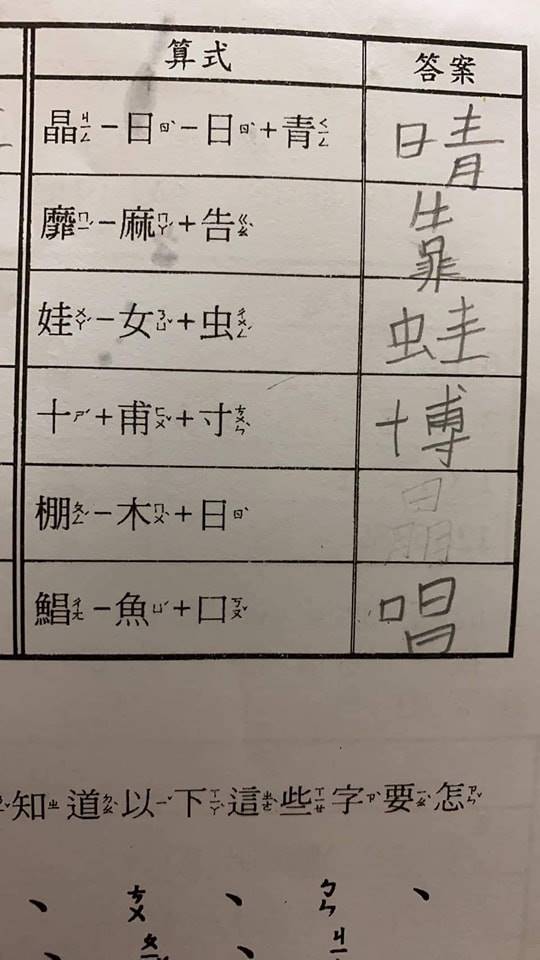 算式 答案
晶ㄐㄧㄥ－日ㄖˋ－日ㄖˋ＋青ㄑㄧㄥ 晴
靡ㄇㄧˊ－麻ㄇㄚˊ＋告ㄍㄠˋ 靠
娃ㄨㄚˊ－女ㄋㄩˇ＋虫ㄔㄨㄥˊ 蛙
十ㄕˊ＋甫ㄈㄨˇ＋寸ㄘㄨㄣˋ 博
棚ㄆㄥˊ－木ㄇㄨˋ＋日ㄖˋ
鯧ㄔㄤ－魚ㄩˊ＋口ㄎㄡˇ 唱
知ㄓ道ㄉㄠˋ以ㄧˇ下ㄒㄧㄚˋ這ㄓㄜˋ些ㄒㄧㄝ字ㄗˋ要ㄧㄠˋ怎ㄗㄣˇ